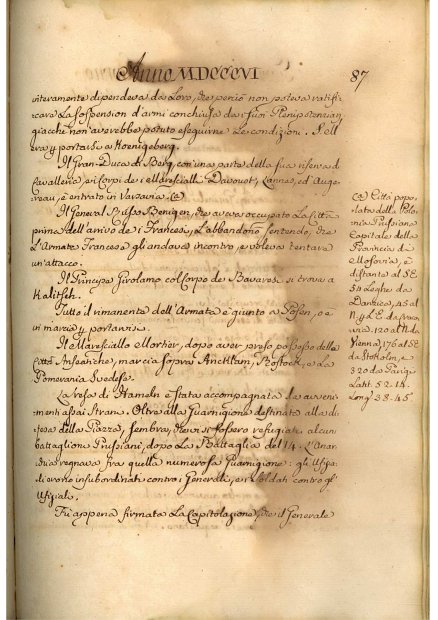 Anno MDCCCVI
87
interamente dipendeva da Loro, che perciò non poteva ratifi-
care La Sospension d'armi conchiusa da' suoi Plenipotenziarj
giacchè non averebbe potuto eseguirne Le condizioni. S'ell
era y portarsi a Koenigsberg.
Il Gran-Duca di Berg, con una parte della sua riserva di
Cavalleria, e i Corpi de' Marescialli Davoust, Lannes, ed Auge-
reau, è entrato in Varsavia. (a)
Il General Russo Benigsen, che aveva occupato La Città
prima dell'arrivo de' Francesi, L'abbandonò sentendo, che
L'Armata Francese gli andava incontro, e voleva tentare
un'attacco.
Il Principe Girolamo col Corpo de' Bavaresi si trova a
Kalitsch.
Tutto il rimanente dell'Armata è giunto a Posen, o è
in marcia y portarvisi.
Il Maresciallo Mortier, dopo aver preso possesso delle
Città Anseatiche, marcia sopra Ancklam, Rostock, e La
Pomerania Svedese.
La resa di Hameln è stata accompagnata da avveni-
menti assai strani. Oltre alla Guarnigione destinata alla di-
fesa della Piazza, sembra, che vi si fossero refugiati alcuni
battaglioni Prussiani, dopo La Battaglia del 14. L'Anar-
chia regnava fra quella numerosa Guarnigione: gli Uffizia-
li erano insubordinati contro i Generali, e i Soldati contro gl'
Uffiziali.
Fu appena firmata La Capitolazione, che il Generale
(a) Città popo-
lata della Polo-
nia Prussiana
Capitale della
Provincia di
Masovia, è
distante al SE.
54 Leghe da
Danzica, 45 al
N. y L'E. da Craco-
via. 120 al N. da
Vienna, 176 al SE.
da Stokolm, e
320 da Parigi
Latit. 52. 14.
Long. 38. 45.